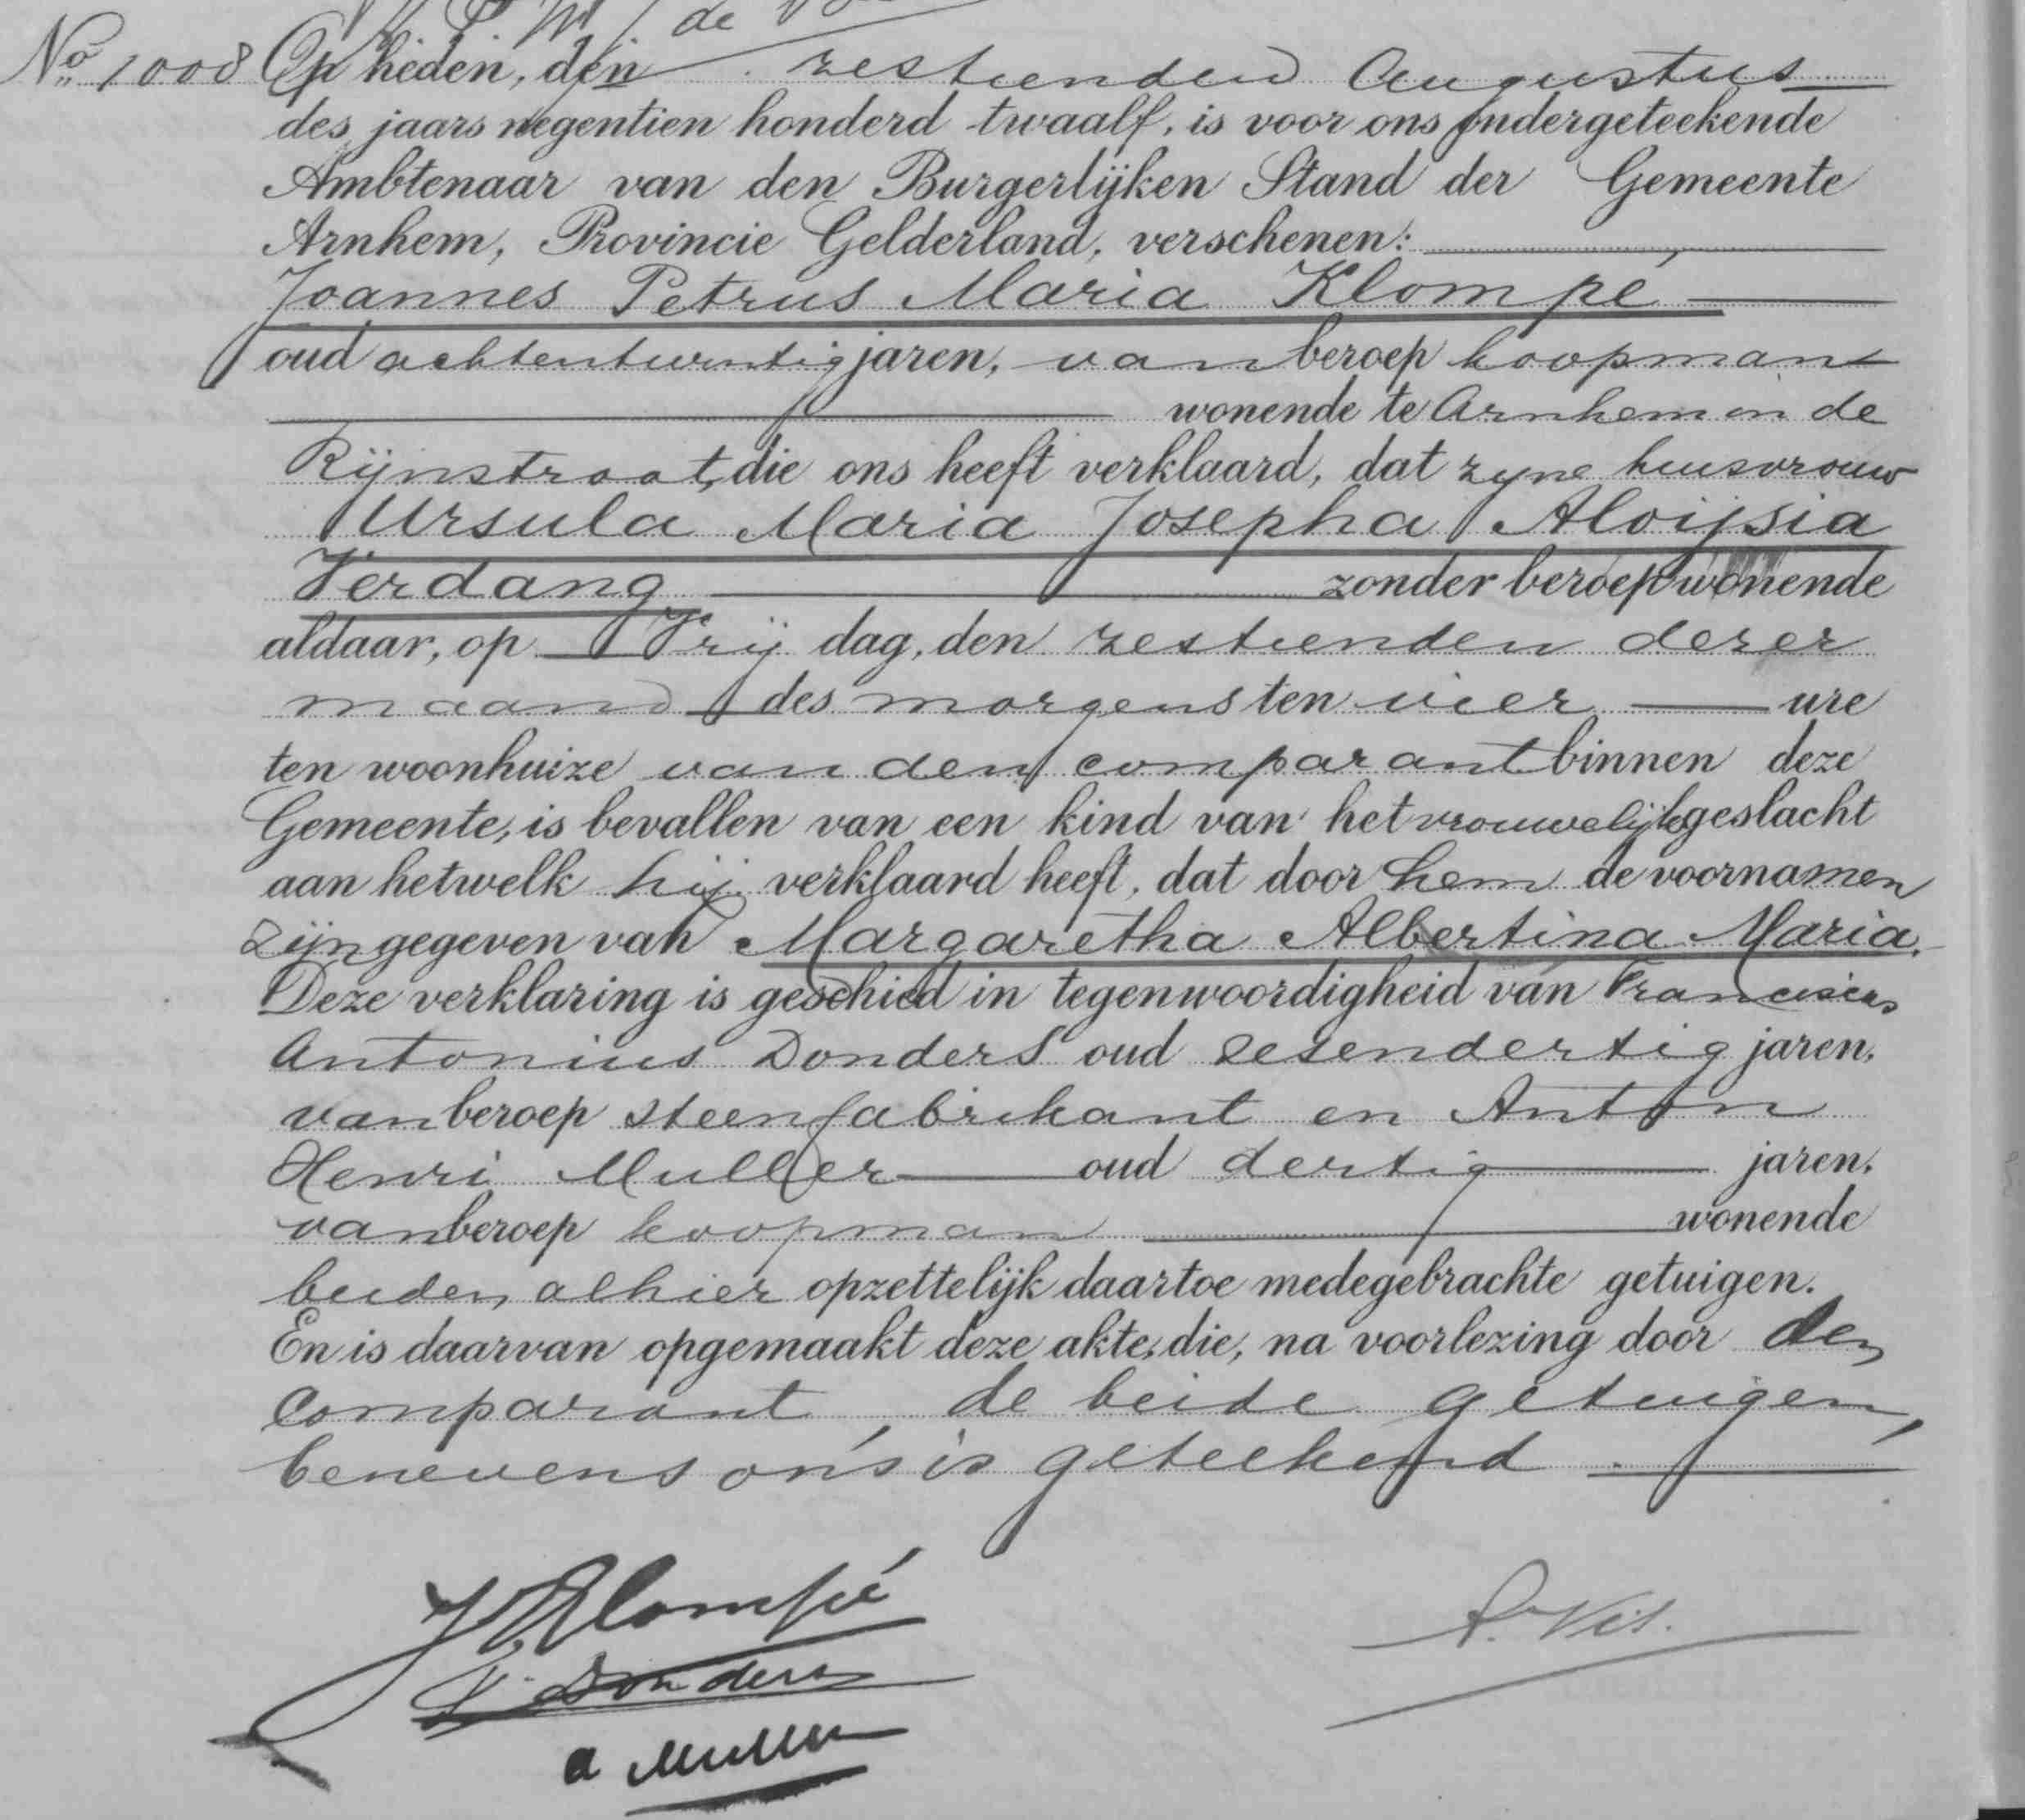 de
No 1008 Op heden, den zestienden Augustus
des jaars negentien honderd twaalf, is voor ons ondergeteekende
Ambtenaar van den Burgerlijken Stand der Gemeente
Arnhem, Provincie Gelderland, verschenen:
Joannes Petrus Maria Klompé
oud achtentwintig jaren, van beroep koopman
wonende te Arnhem in de
Rijnstraat, die ons heeft verklaard, dat zijne huisvrouw
Ursula Maria Josepha Aloijsia
Verdang zonder beroep wonende
aldaar, op Vrijdag, den zestienden dezer
maand des morgens ten vier ure
ten woonhuize van den comparant binnen deze
Gemeente, is bevallen van een kind van het vrouwelijk geslacht
aan hetwelk hij verklaard heeft, dat door hem de voornamen
zijn gegeven van Margaretha Albertina Maria.
Deze verklaring is geschied in tegenwoordigheid van Franciscus
Antonius Donders oud zesendertig jaren,
van beroep steenfabrikant en Anton
Henri Muller oud dertig jaren,
van beroep koopman wonende
beiden alhier opzettelijk daartoe medegebrachte getuigen.
En is daarvan opgemaakt deze akte, die, na voorlezing door den
comparant, de beide getuigen,
benevens ons is geteekend.
JKlompé
F. Donders
A. Vis.
a Muller